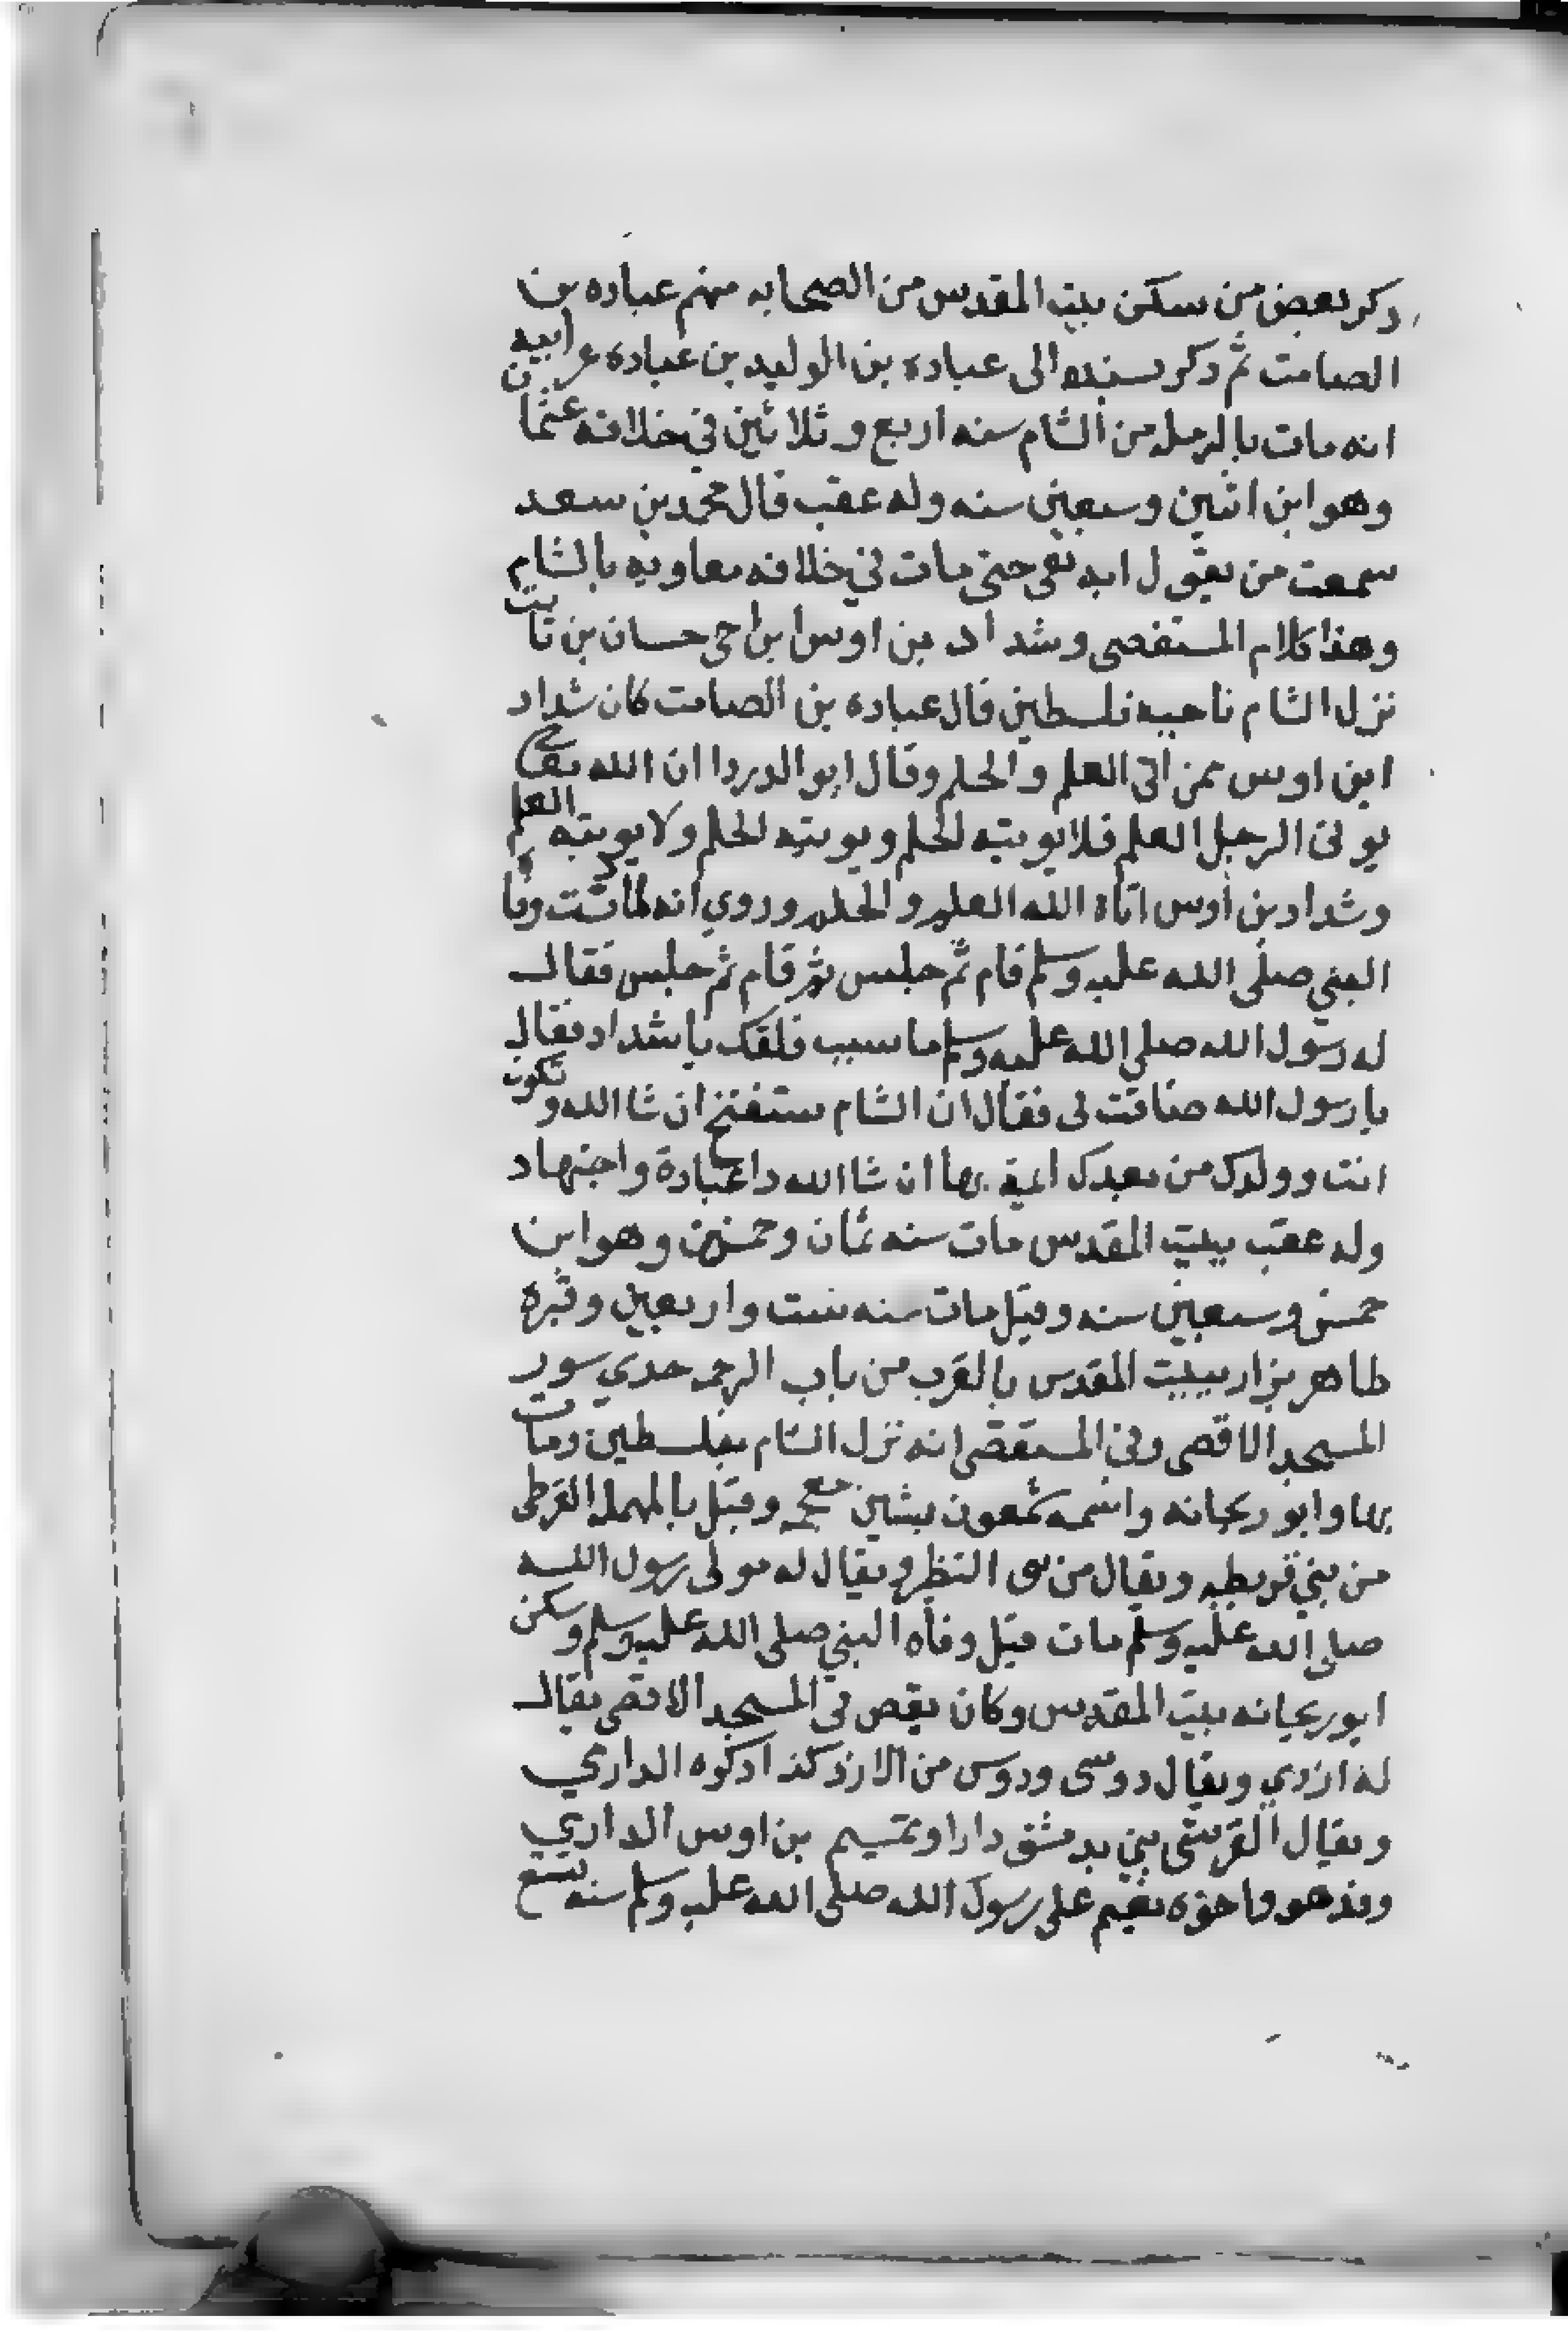 ذكر بعض من سكن ببيت المقدس من الصحابه منهم عباده بن
الصامت ثم ذكر بسنده الى عباده بن الوليد بن عباده عن ابيه
انه مات بالرمله من الشام سنه اربع وثلاثين في خلافه عثمان
وهو ابن اثنين وسبعين سنه وله عقب قال محمد بن سعد
سمعت من يقول انه بقى حتى مات في خلافه معاويه بالشام
وهذا كلام المستقصى وشداد بن اوس ابن اخى حسان بن ثابت
نزل الشام ناحيه فلسطين قال عباده بن الصامت كان شداد
ابن اوس ممن اتى العلم والحلم وقال ابو الدردا ان الله تعالى
يوتى الرجل العلم فلا يوتيه الحلم ويوتيه الحلم ولا يوتيه العلم
وشداد بن أوس اتاه الله العلم والحلم وروي انه لما دنت وفاة
النبي صلى الله عليه وسلم قام ثم جلس ثم قام ثم جلس فقال
له رسول الله صلى الله عليه وسلم ما سبب قلقك يا شداد فقال
يا رسول الله ضاقت لى فقال ان الشام ستفتح ان شا الله وتكون
انت وولدك من بعدك ايمة بها ان شا الله ذا عبادة واجتهاد
وله عقب ببيت المقدس مات سنه ثمان وخمسين وهو ابن
خمس وسبعين سنه وقيل مات سنه ست واربعين وقبره
ظاهر يزار ببيت المقدس بالقرب من باب الرحمه حدي سور
المسجد الاقصى وفي المستقصى انه نزل الشام بفلسطين ومات
بها وابو ريحانه واسمه شمعون بشين معجمه وقيل بالمهمله القرظى
من بني قريظه ويقال من بنى النظير ويقال له مولى رسول الله
صلى الله عليه وسلم مات قبل وفاه النبي صلى الله عليه وسلم وسكن
ابو ريحانه ببيت المقدس وكان يقص فى المسجد الاقصى يقال
له ازدي ويقال دوسى ودوس من الازد كذا ذكره الداري
ويقال القرشى بني بدمشق دارا وتميم بن اوس الداري
وفد هو واخوه نعيم على رسول الله صلى الله عليه وسلم سنه تسع